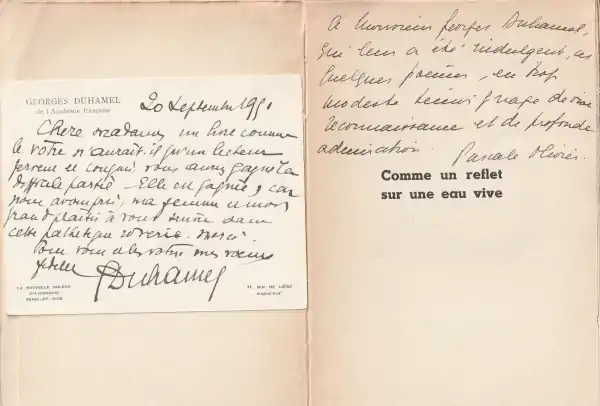 GEORGES DUHAMEL
de l'Académie française
20 Septembre 1951
Chère madame, un livre comme
le vôtre n'aurait-il qu'un lecteur
fervent et conquis, vous auriez gagné la
difficile partie. Elle est gagnée, car
nous avons pris, ma femme et moi
grand plaisir à vous suivre dans
cette pathétique rêverie. Merci.
Pour vous et les vôtres mes vœux
fidèles
GDuhamel
LA NOUVELLE MAISON
VALMONDOIS
SEINE-ET-OISE
RUE DE LIÈGE
PARIS
A Monsieur Georges Duhamel,
qui leur a été indulgent, ces
quelques poèmes, en trop
modeste témoignage de vive
reconnaissance et de profonde
admiration.
Pascale Olivier.
Comme un reflet
sur une eau vive